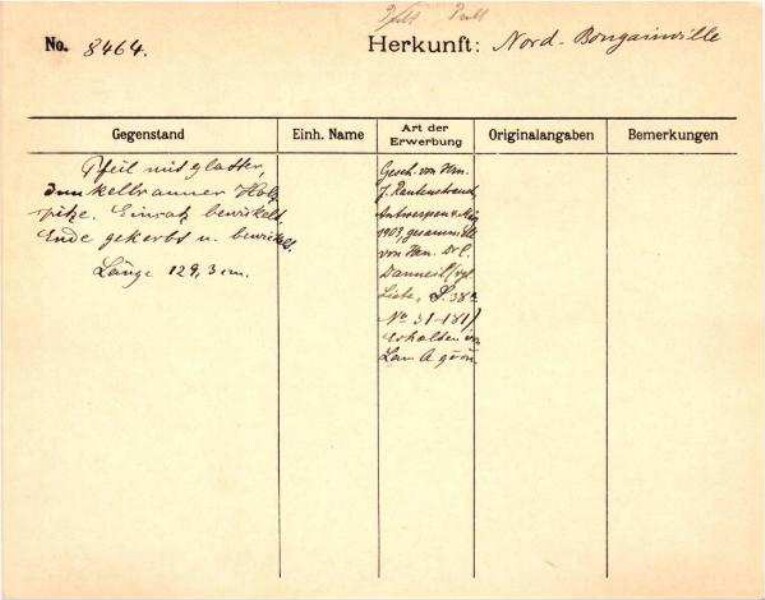 No. 8464.
Herkunft: Nord-Bougainville
Gegenstand
Einh. Name
Art der Erwerbung
Originalangaben
Bemerkungen
Pfeil mit glatter,
dunkelbrauner Holz
spitze. Einsatz bewickelt,
Ende gekerbt u. bewickelt.
Länge 129,3 cm.
Gesch. von Hrn.
J. Rautenstrauch
Antwerpen
1903, gesammelt
von Hrn. Dr C.
Danneil (vgl
Liste, S. 38
No 31-181)
erhalten im